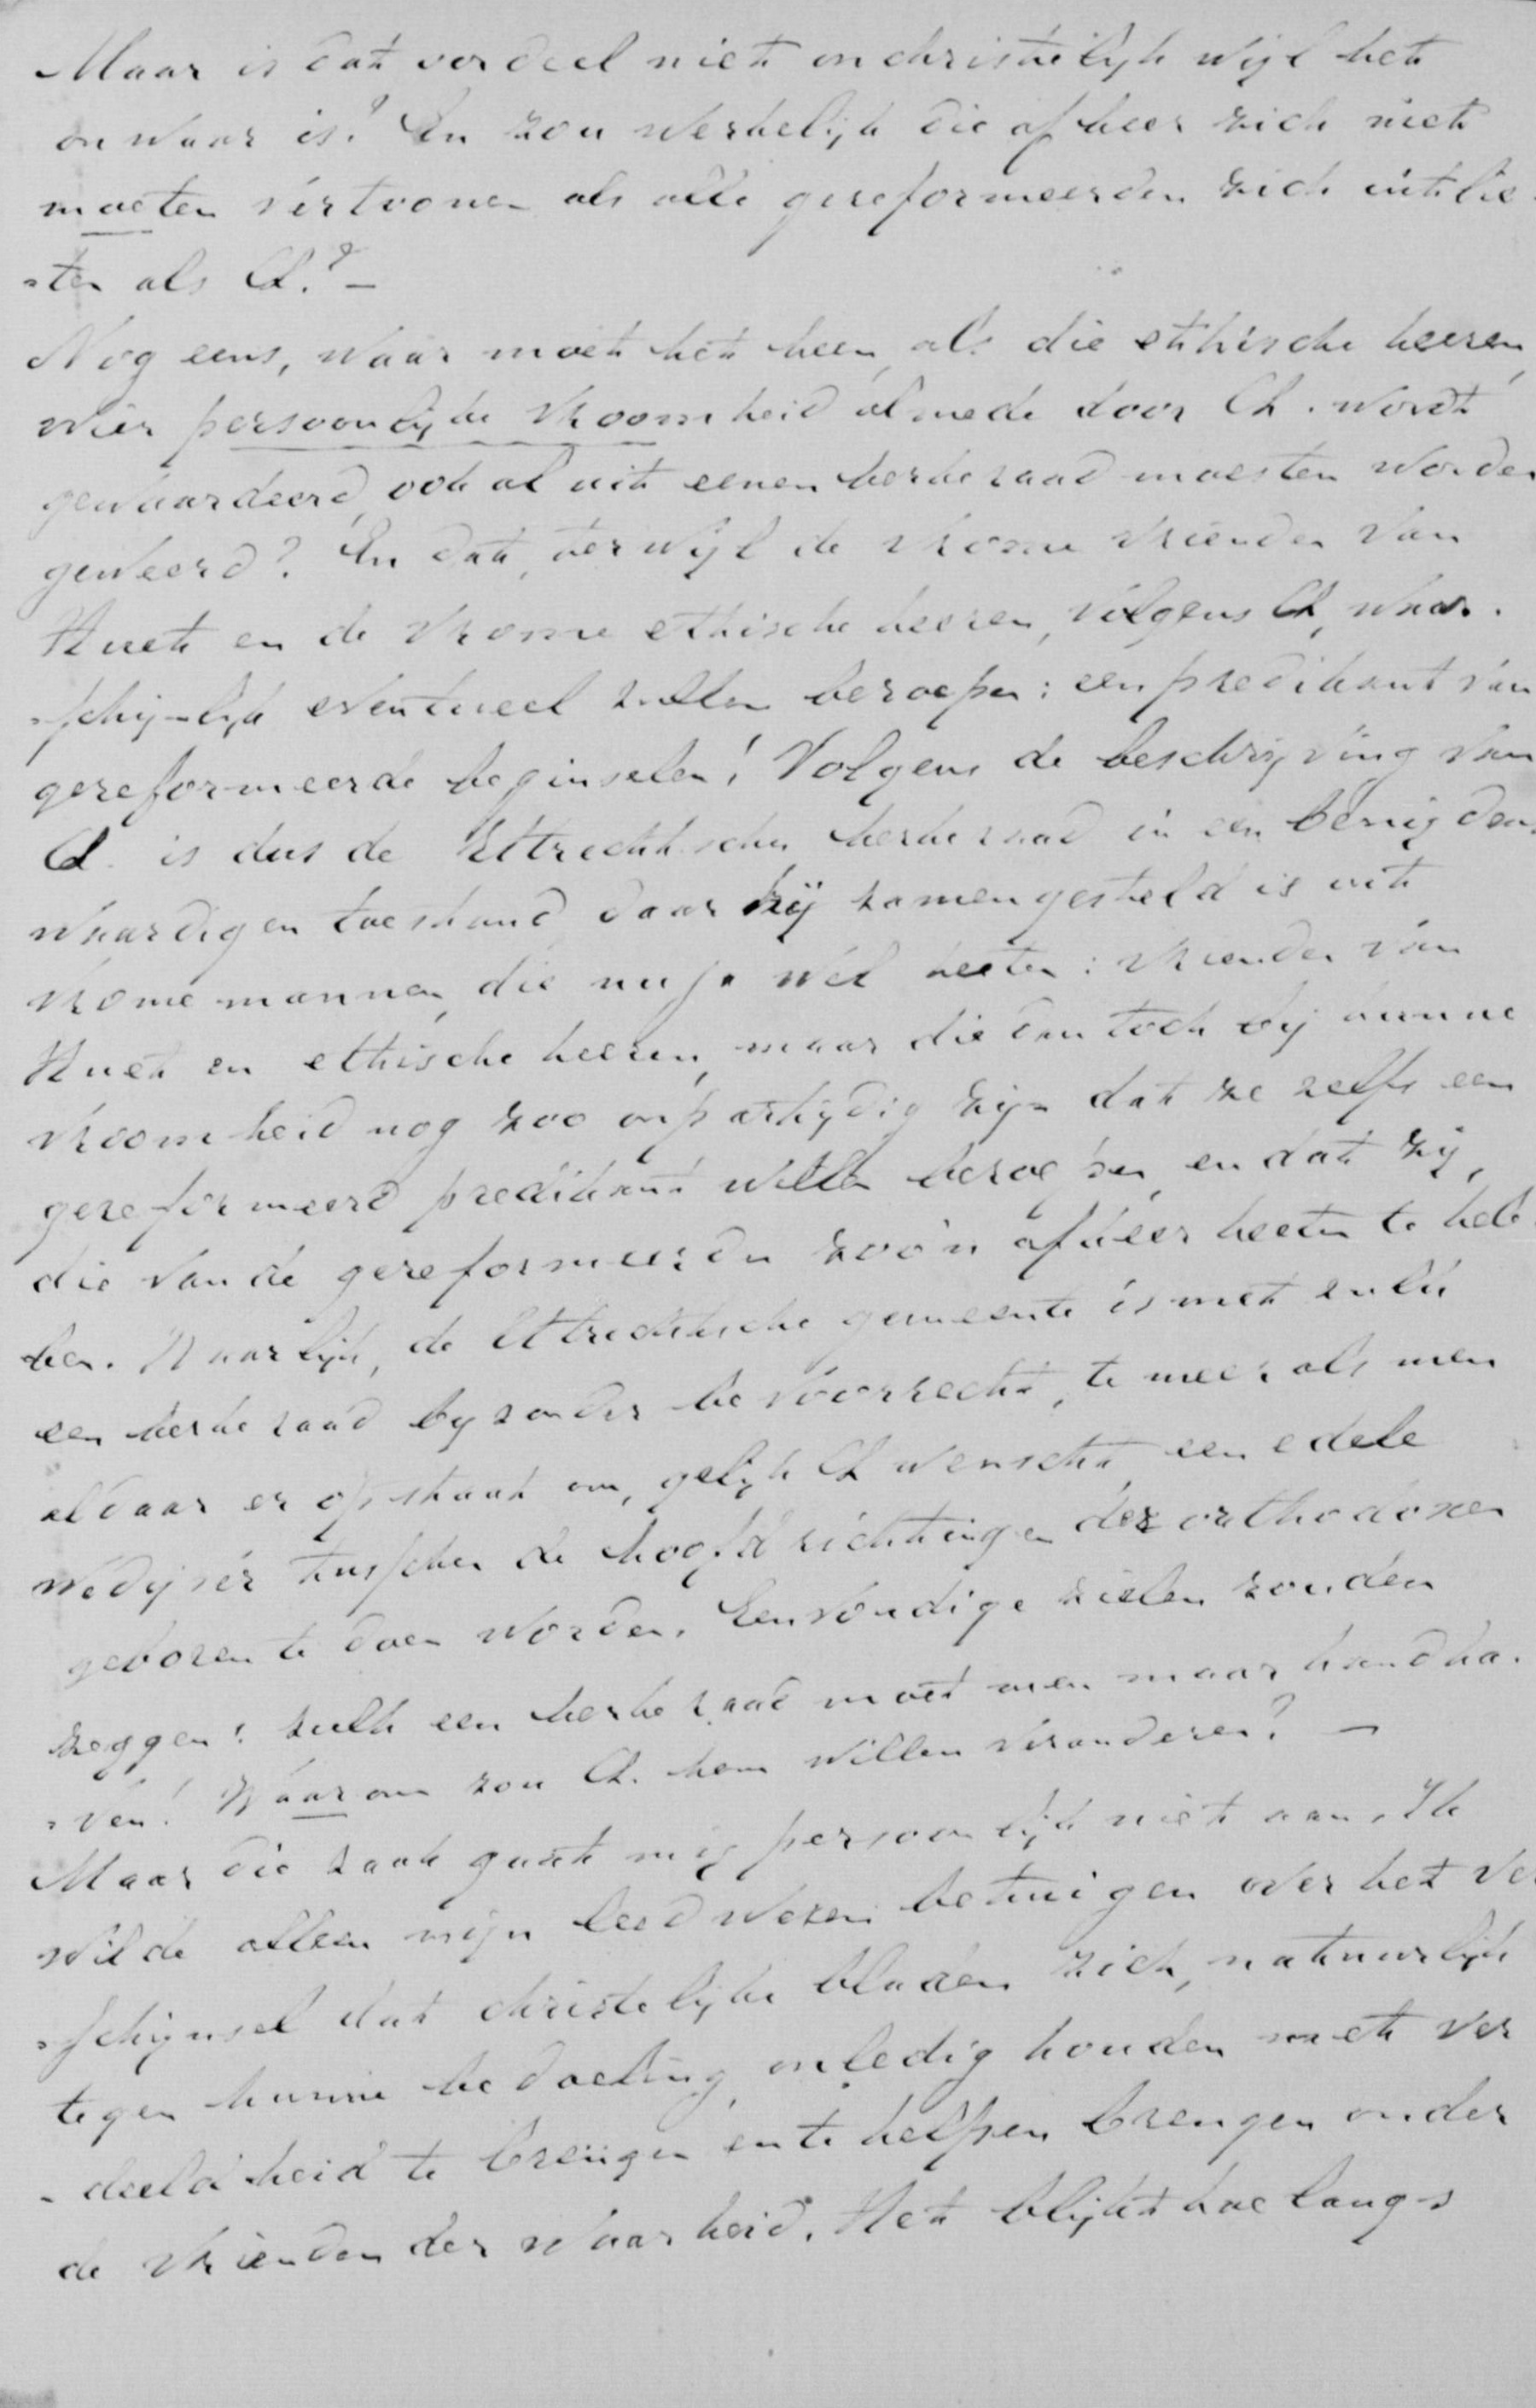 Maar is dat oordeel niet onchristelijk wijl het
onwaar is? En zou werkelijk die afkeer zich niet
moeten vertoonen als alle gereformeerden zich uitlie-
-ten als Ch.? —
Nog eens, waar moet het heen, als die ethische heeren,
wier persoonlijke vroomheid almede door Ch. wordt
gewaardeerd, ook al uit eenen kerkeraad moesten worden
geweerd? En dat, terwijl de vrome vrienden van
Huet en de vrome ethische heeren, volgens Ch, waar-
-schijnlijk eventueel zullen beroepen: een predikant van
gereformeerde beginselen! Volgens de beschrijving van
Ch. is dus de Utrechtsche kerkeraad in een benijdens-
waardigen toestand daar hij zamengesteld is uit
vrome mannen, die nu ja wel heeten: vrienden van
Huet en ethische heeren, maar die dan toch bij hunne
vroomheid nog zoo onpartijdig zijn dat ze zelfs een
gereformeerd predikant willen beroepen, en dat zij,
die van de gereformeerden zoo'n afkeer heeten te heb-
ben. Waarlijk, de Utrechtsche gemeente is met zulk
een kerkeraad bijzonder bevoorrecht, te meer als men
aldaar er op staat om, gelijk Ch wenscht, een edele
wedijver tusschen de hoofdrichtingen der orthodoxen
geboren te doen worden. Eenvoudige zielen zouden
zeggen: zulk een kerkeraad moet men maar handha-
-ven! Waarom zou Ch. hem willen veranderen? —
Maar die zaak gaat mij persoonlijk niet aan. Ik
wilde alleen mijn leedwezen betuigen over het ver
-schijnsel dat christelijke bladen zich, natuurlijk
tegen hunne bedoeling, onledig houden met ver
-deeldheid te brengen en te helpen brengen onder
de vrienden der waarheid. Het blijkt hoe langs